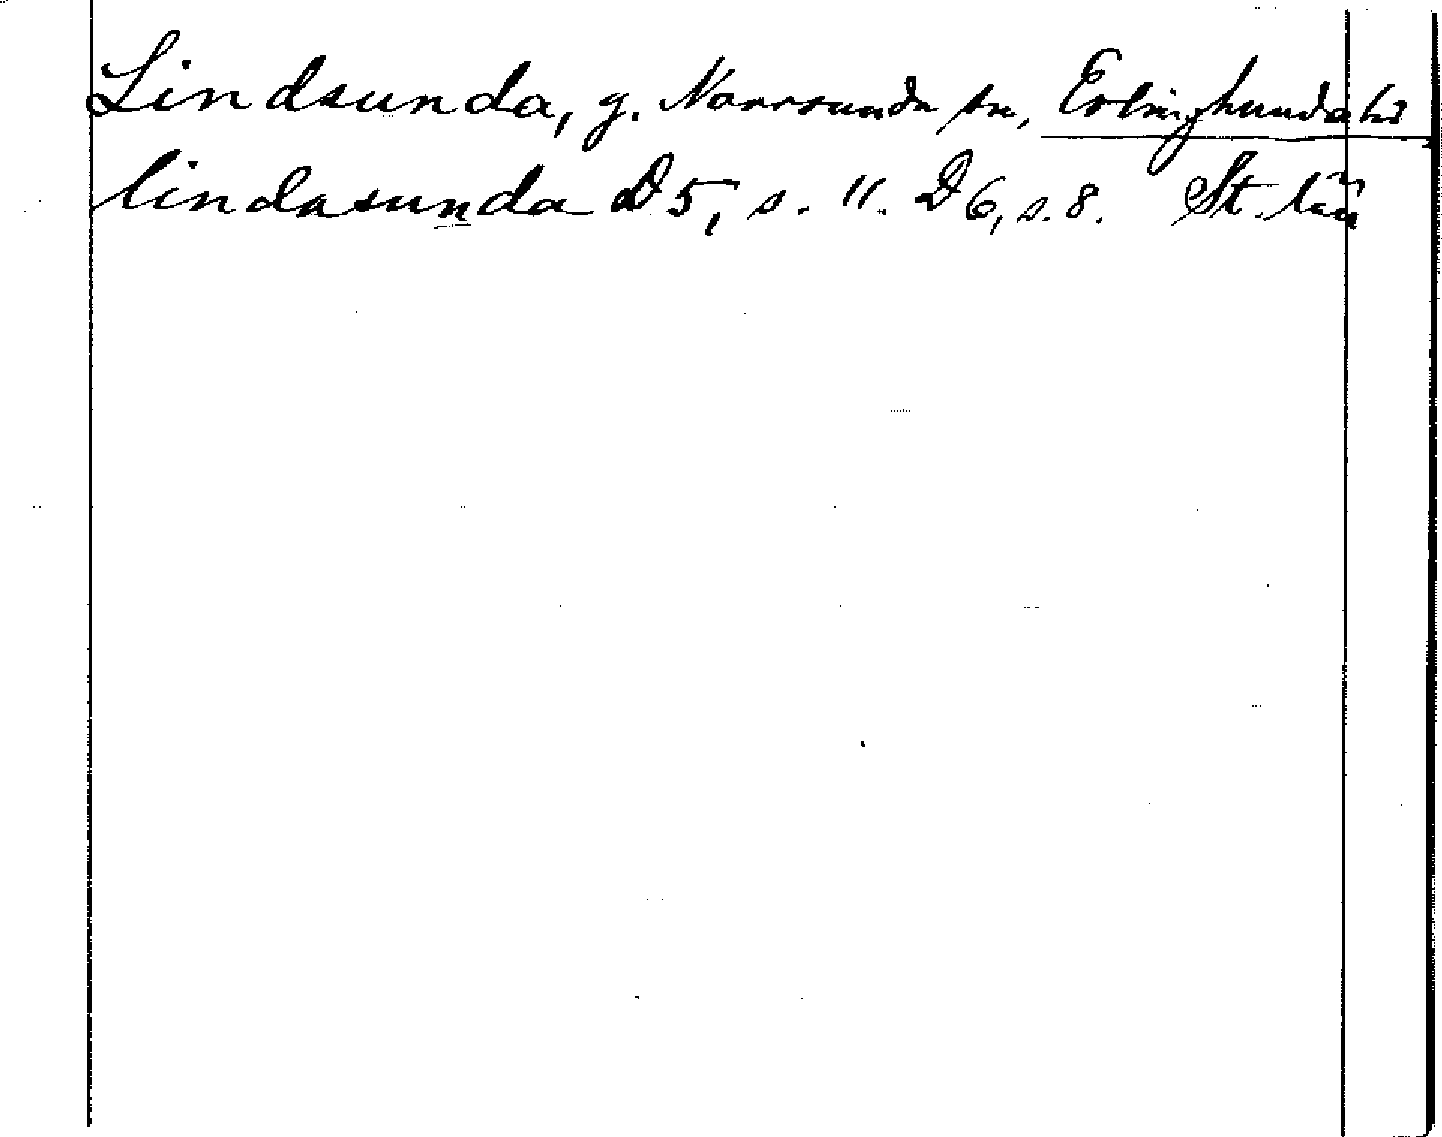 Lindsunda, g. Norrsunda sn, Erlinghundra hd
lindasunda D5, s. 11. D6, s. 8. St. län